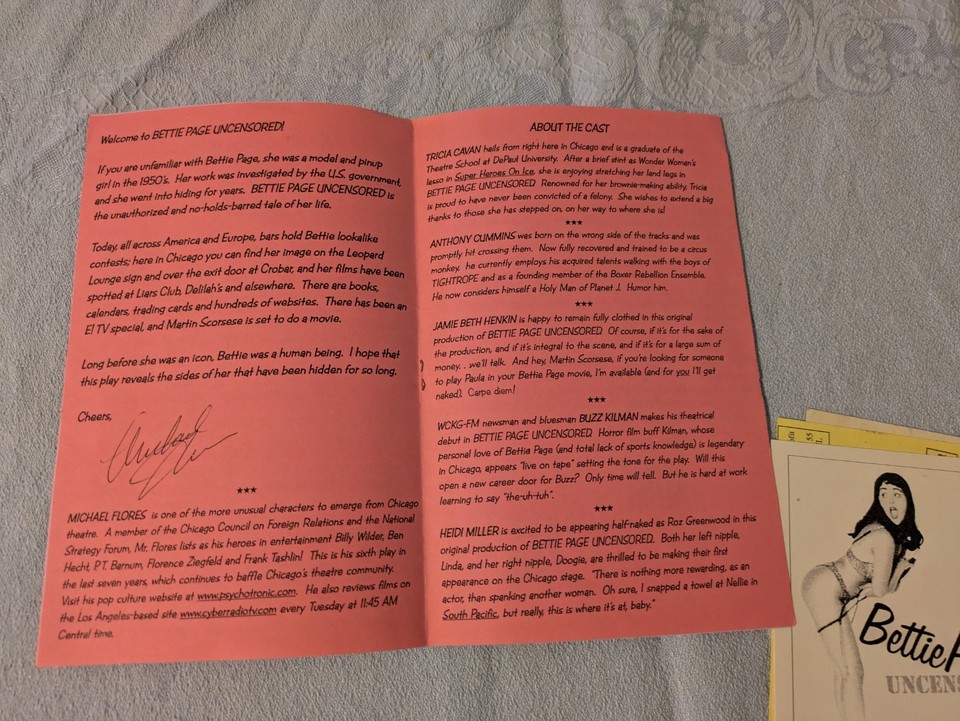 Welcome to BETTIE PAGE UNCENSORED!
If you are unfamiliar with Bettie Page, she was a model and pinup
girl in the 1950's. Her work was investigated by the U.S. government,
and she went into hiding for years. BETTIE PAGE UNCENSORED is
the unauthorized and no-holds-barred tale of her life.
Today, all across America and Europe, bars hold Bettie lookalike
contests; here in Chicago you can find her image on the Leopard
Lounge sign and over the exit door at Crobar, and her films have been
spotted at Liars Club, Delilah's and elsewhere. There are books,
calendars, trading cards and hundreds of websites. There has been an
E! TV special, and Martin Scorsese is set to do a movie.
Long before she was an icon, Bettie was a human being. I hope that
this play reveals the sides of her that have been hidden for so long.
Cheers,
***
MICHAEL FLORES is one of the more unusual characters to emerge from Chicago
theatre. A member of the Chicago Council on Foreign Relations and the National
Strategy Forum, Mr. Flores lists as his heroes in entertainment Billy Wilder, Ben
Hecht, P.T. Barnum, Florence Ziegfeld and Frank Tashlin! This is his sixth play in
the last seven years, which continues to baffle Chicago's theatre community.
Visit his pop culture website at www.psychotronic.com. He also reviews films on
the Los Angeles-based site www.cyberradiotv.com every Tuesday at 11:45 AM
Central time.
ABOUT THE CAST
TRICIA CAVAN hails from right here in Chicago and is a graduate of the
Theatre School at DePaul University. After a brief stint as Wonder Women's
lasso in Super Heroes On Ice, she is enjoying stretching her land legs in
BETTIE PAGE UNCENSORED. Renowned for her brownie-making ability, Tricia
is proud to have never been convicted of a felony. She wishes to extend a big
thanks to those she has stepped on, on her way to where she is!
***
ANTHONY CUMMINS was born on the wrong side of the tracks and was
promptly hit crossing them. Now fully recovered and trained to be a circus
monkey, he currently employs his acquired talents walking with the boys of
TIGHTROPE and as a founding member of the Boxer Rebellion Ensemble.
He now considers himself a Holy Man of Planet J. Humor him.
***
JAMIE BETH HENKIN is happy to remain fully clothed in this original
production of BETTIE PAGE UNCENSORED. Of course, if it's for the sake of
the production, and if it's integral to the scene, and if it's for a large sum of
money. . we'll talk. And hey, Martin Scorsese, if you're looking for someone
to play Paula in your Bettie Page movie, I'm available (and for you I'll get
naked). Carpe diem!
***
WCKG-FM newsman and bluesman BUZZ KILMAN makes his theatrical
debut in BETTIE PAGE UNCENSORED. Horror film buff Kilman, whose
personal love of Bettie Page (and total lack of sports knowledge) is legendary
in Chicago, appears "live on tape" setting the tone for the play. Will this
open a new career door for Buzz? Only time will tell. But he is hard at work
learning to say "the-uh-tuh".
***
HEIDI MILLER is excited to be appearing half-naked as Roz Greenwood in this
original production of BETTIE PAGE UNCENSORED. Both her left nipple,
Linda, and her right nipple, Doogie, are thrilled to be making their first
appearance on the Chicago stage. "There is nothing more rewarding, as an
actor, than spanking another woman. Oh sure, I snapped a towel at Nellie in
South Pacific, but really, this is where it's at, baby."
55
Bettie P
UNCENS